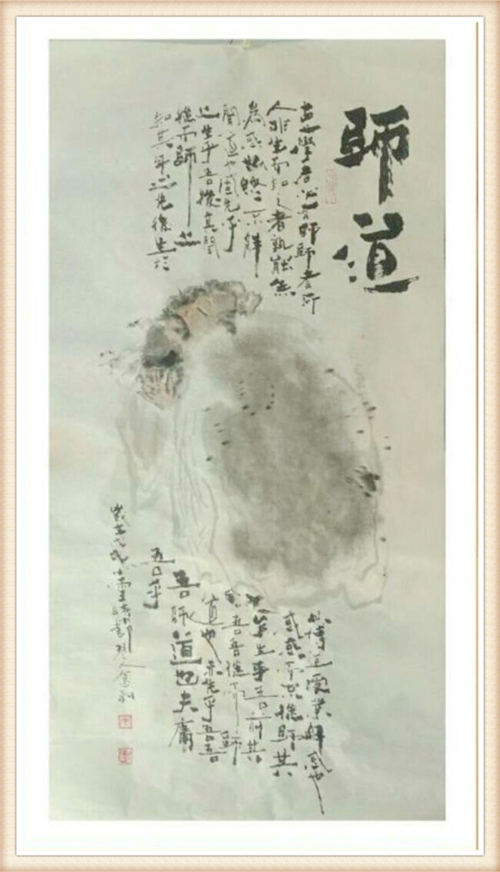 師道
古之學者必有師師者所
以傳道受業解惑也
人非生而知之者孰能無
惑惑而不從師其
為惑也終不解
矣生乎吾前其
聞道也固先乎
吾吾從而師
之生乎吾後其聞
道也亦先乎吾吾
從而師之
吾師道也夫庸
知其年之先後生於
吾乎